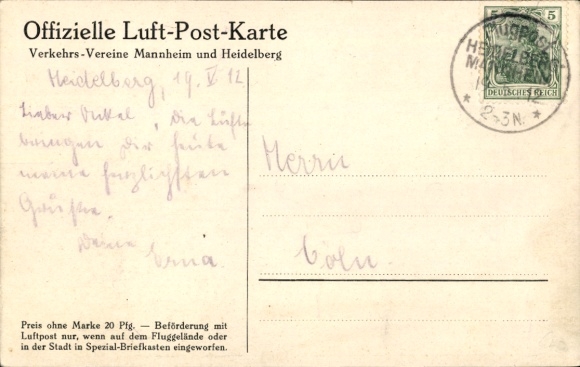 Offizielle Luft-Post-Karte
Verkehrs-Vereine Mannheim und Heidelberg
Heidelberg, 19. V. 12
Lieber Onkel, die Lüfte
bringen Dir heute
meine herzlichsten
Grüße.
Deine
Erna
Preis ohne Marke 20 Pfg. — Beförderung mit
Luftpost nur, wenn auf dem Fluggelände oder
in der Stadt in Spezial-Briefkasten eingeworfen.
5 5
DEUTSCHES REICH
FLUGPOST
HEIDELBERG
MANNHEIM
* 2-3N. *
Herrn
Cöln